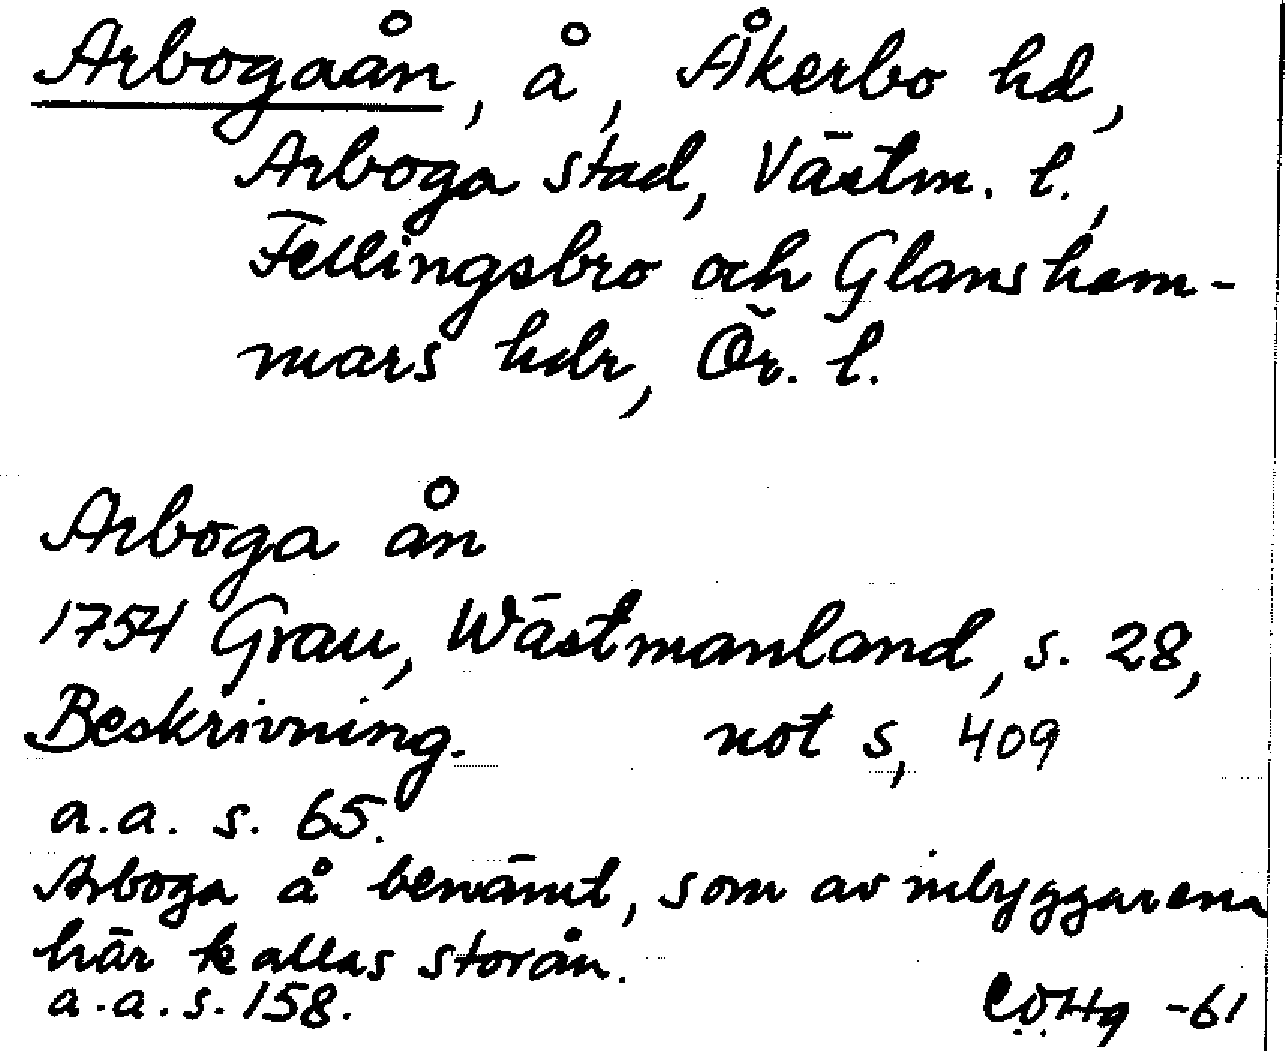 Arbogaån, å, Åkerbo hd,
Arboga stad, Västm. l.,
Fellingsbro och Glansham-
mars hdr, Ör. l.
Arboga ån
1754 Grau, Wästmanland, s. 28,
Beskrivning. not s, 409
a.a. s. 65.
Arboga å benämt, som av inbyggarena
här kallas storån.
a.a. s. 158.
-61